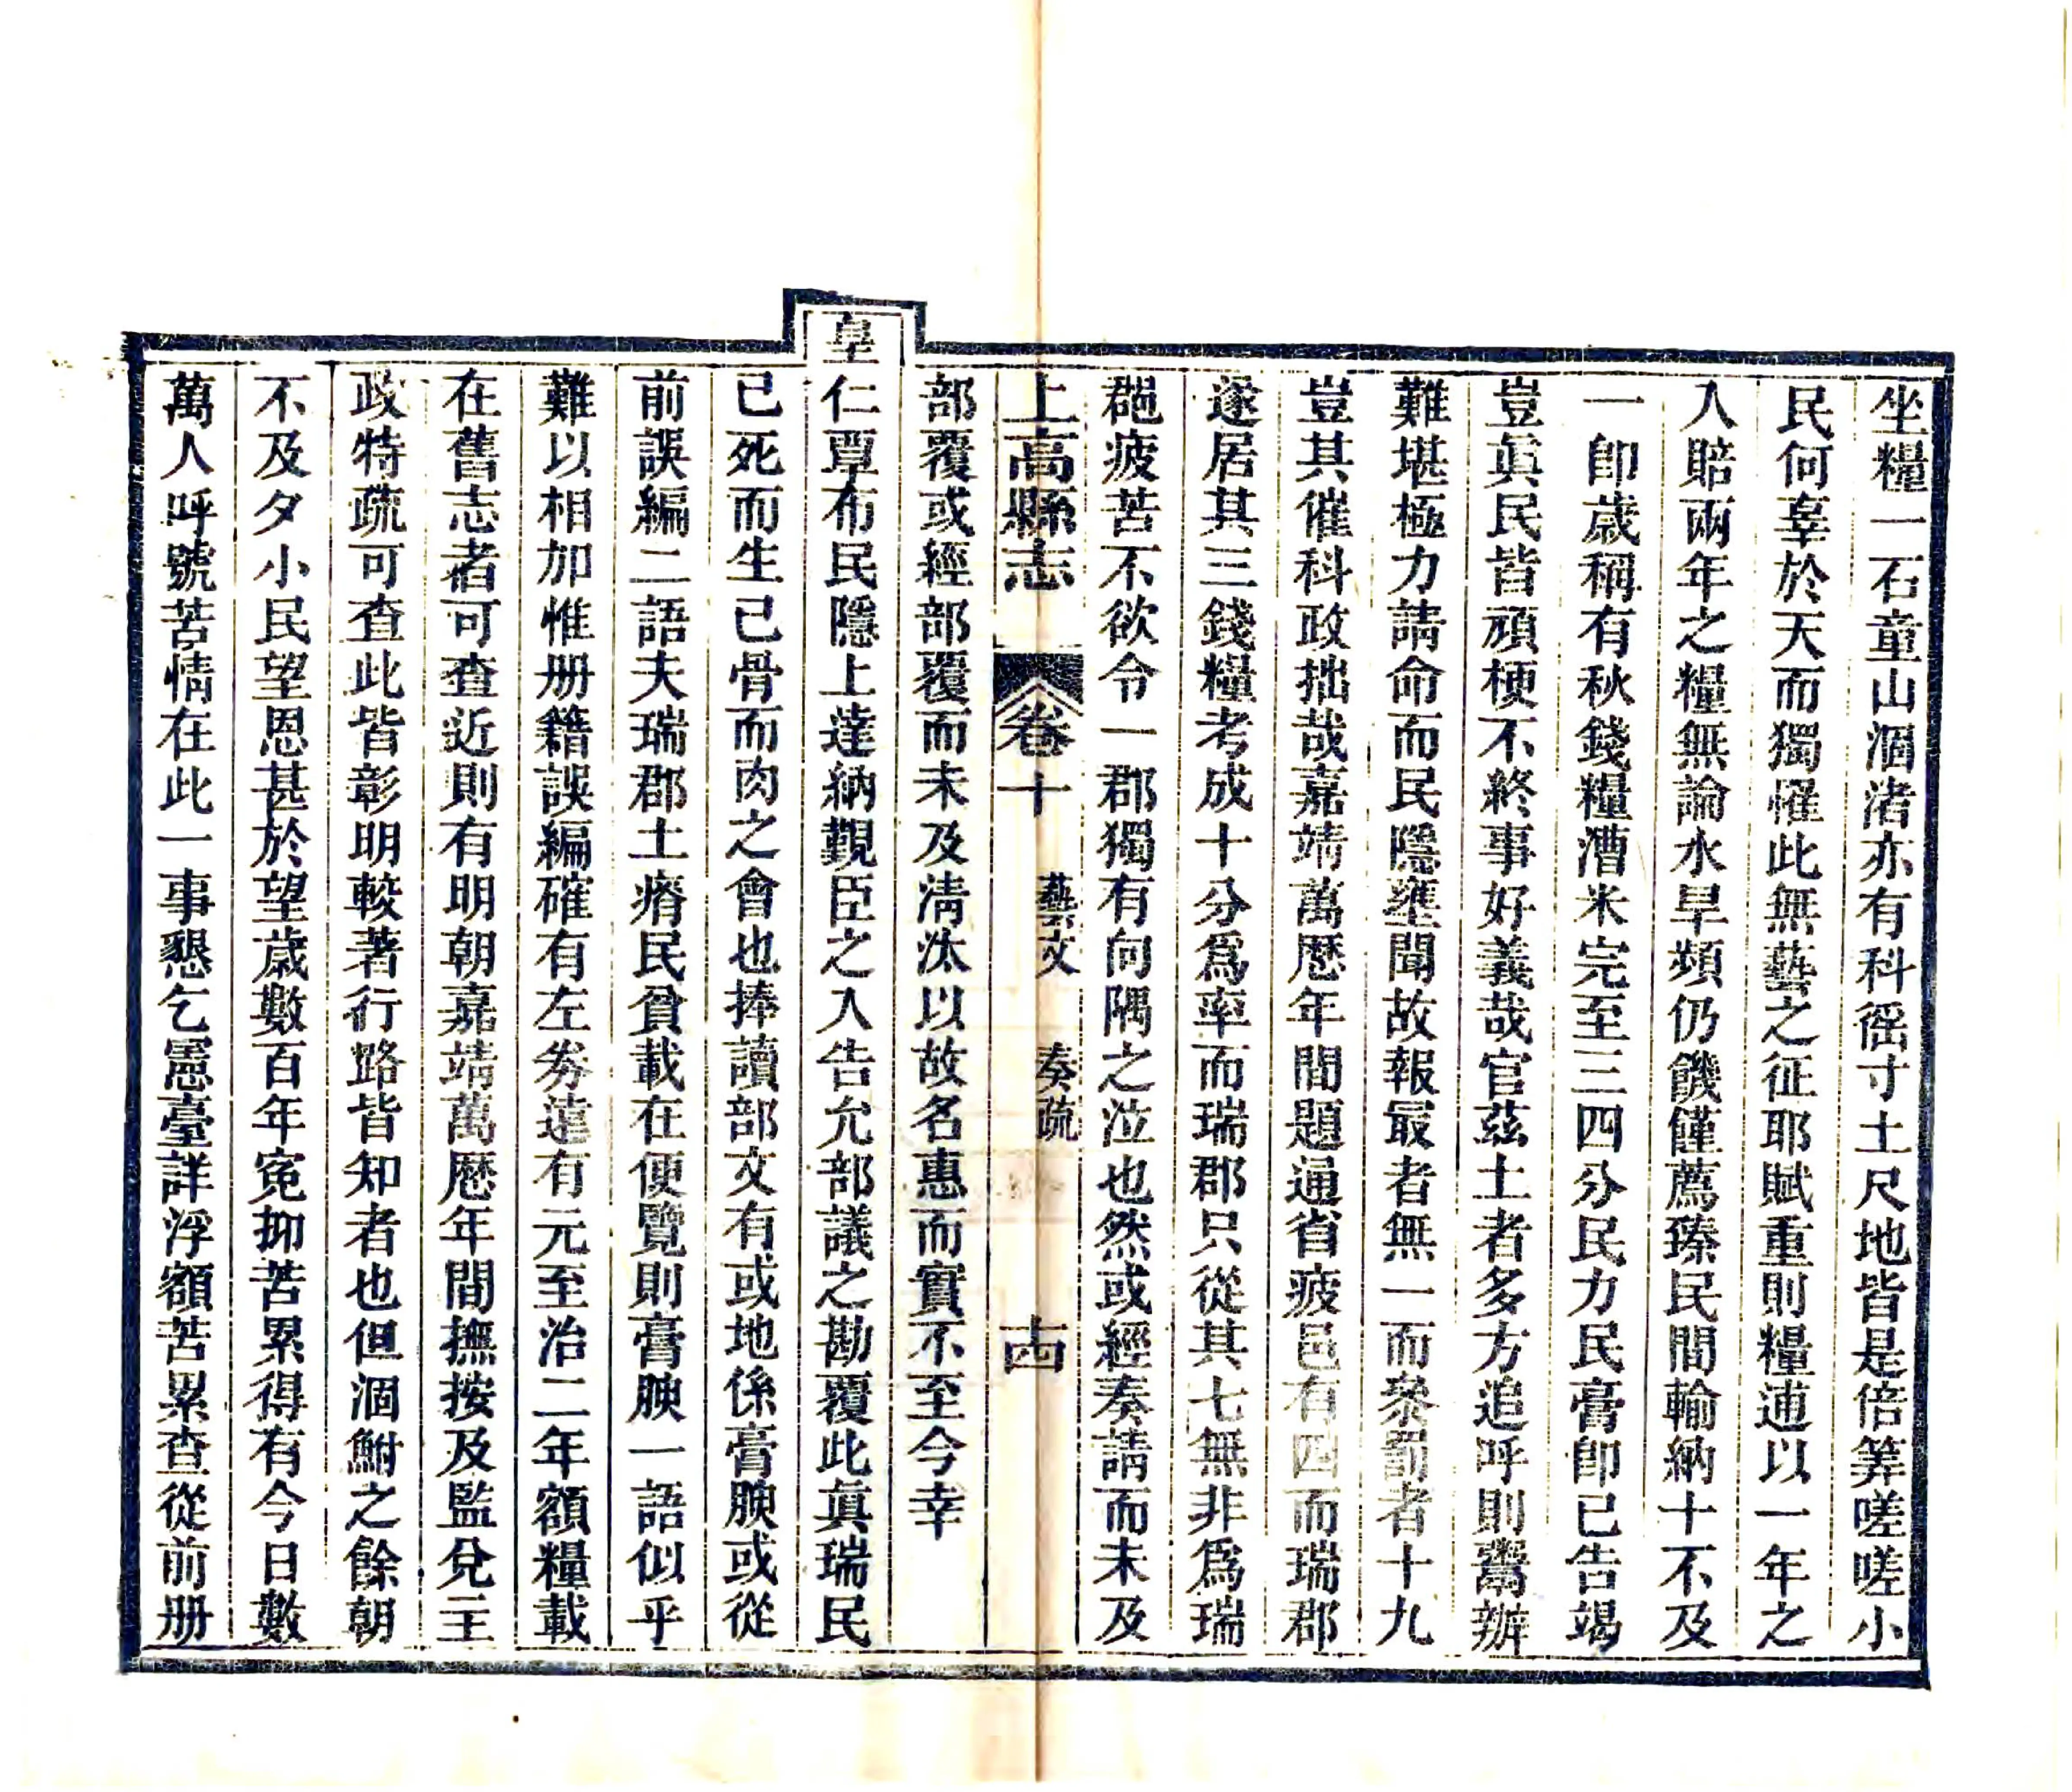 坐糧一石童山涸渚亦有科徭寸土尺地皆是倍筭嗟嗟小
民何辜於天而獨罹此無藝之征耶賦重則糧逋以一年之
入賠兩年之糧無論水旱頻仍饑饉薦臻民間輸納十不及
一卽歲稱有秋錢糧漕米完至三四分民力民膏卽已告竭
豈眞民皆頑梗不終事好義哉官茲土者多方追呼則鬻辦
難堪極力請命而民隱壅聞故報最者無一而叅罰者十九
豈其催科政拙哉嘉靖萬歷年間題通省疲邑有四而瑞郡
遂居其三錢糧考成十分爲率而瑞郡只從其七無非爲瑞
郡疲苦不欲令一郡獨有向隅之泣也然或經奏請而未及
上高縣志 卷十 藝文 奏疏 十四
部覆或經部覆而未及淸汰以故名惠而實不至今幸
皇
仁覃布民隱上達納覲臣之入告允部議之勘覆此眞瑞民
已死而生已骨而肉之會也捧讀部文有或地係膏腴或從
前誤編二語夫瑞郡土瘠民貧載在便覽則膏腴一語似乎
難以相加惟册籍誤編確有左券遠有元至治二年額糧載
在舊志者可查近則有明朝嘉靖萬歷年間撫按及監兌主
政特疏可查此皆彰明較著行路皆知者也但涸鮒之餘朝
不及夕小民望恩甚於望歲數百年寃抑苦累得有今日數
萬人呼號苦情在此一事懇乞憲臺詳浮額苦累查從前册